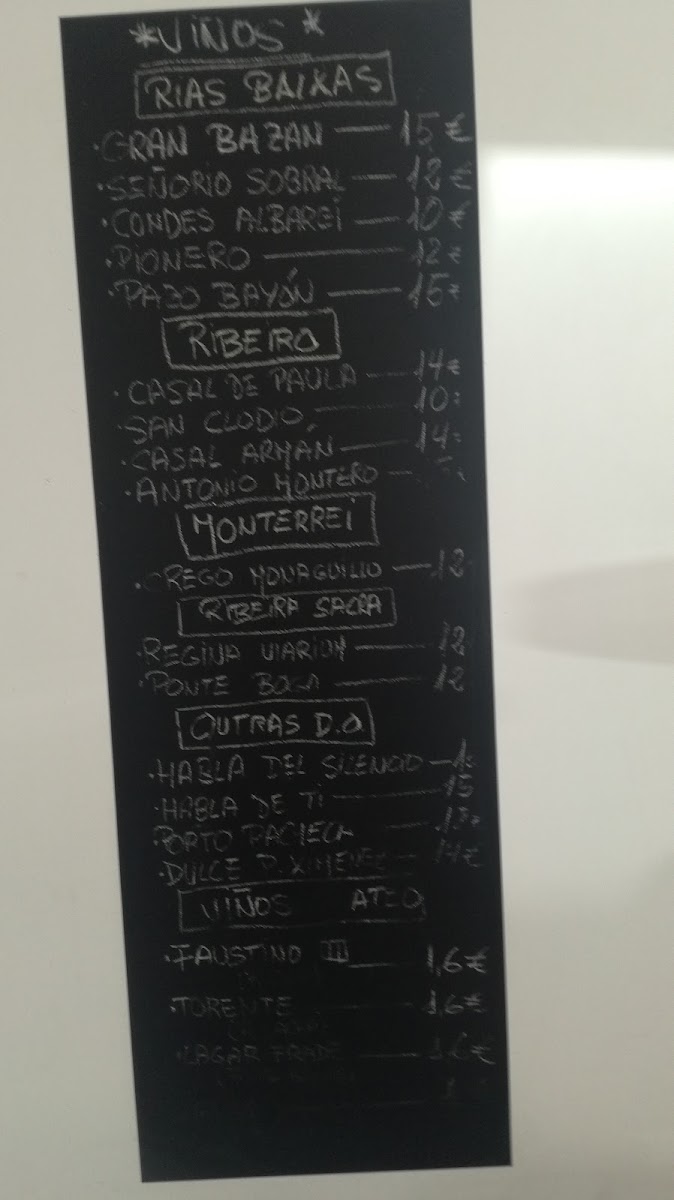 *VIÑOS*
RIAS BAIXAS
·GRAN BAZAN — 15€
·SEÑORIO SOBRAL — 18€
·CONDES ALBAREÍ — 10€
·PIONERO — 12€
·PAZO BAYÓN — 15€
RIBEIRO
·CASAL DE PAULA — 14€
·SAN CLODIO — 10
·CASAL ARMAN — 14
·ANTONIO MONTERO —
MONTERREI
·CREGO MONAGUILLO — 12
RIBEIRA SACRA
·REGINA VIARUM — 12
·PONTE BOGA — 12
OUTRAS D.O.
·HABLA DEL SILENCIO —
·HABLA DE TI — 15
PORTO PACHECA —
·DULCE P. XIMENEZ — 14€
VIÑOS
·FAUSTINO III — 1,6€
·TORENTE — 1,6€
·LAGAR FRADE — 1,6€